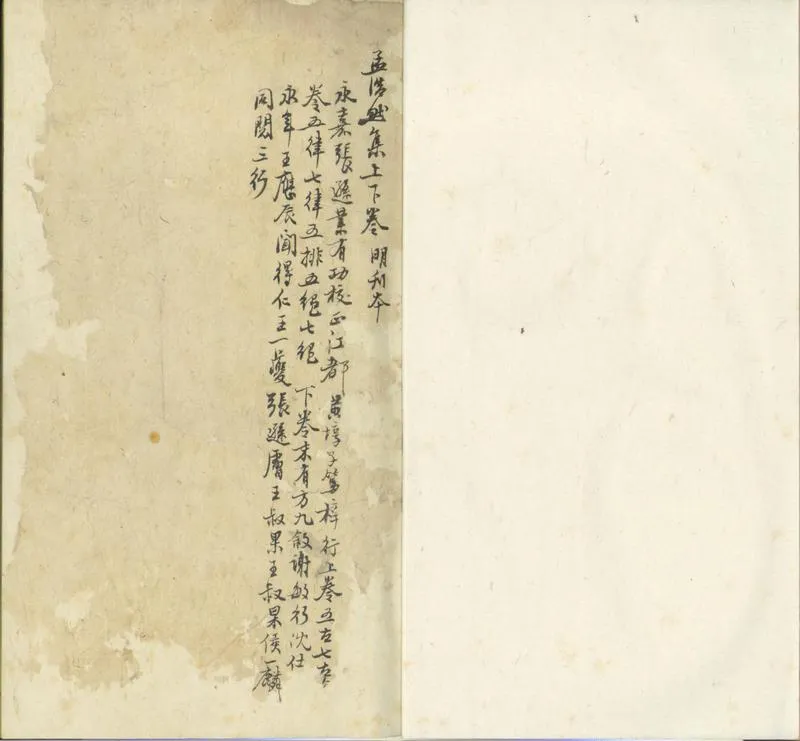 孟浩然集上下卷 明刊本
永嘉張遜業有功校正江都 黃埻子篤梓行上卷五古七古下
卷五律七律五排五絕七絕 下卷末有方九敘謝敏行沈仕
永年王應辰聞得仁王一夔張遜膚王叔果王叔杲侯一麟
同閱三行